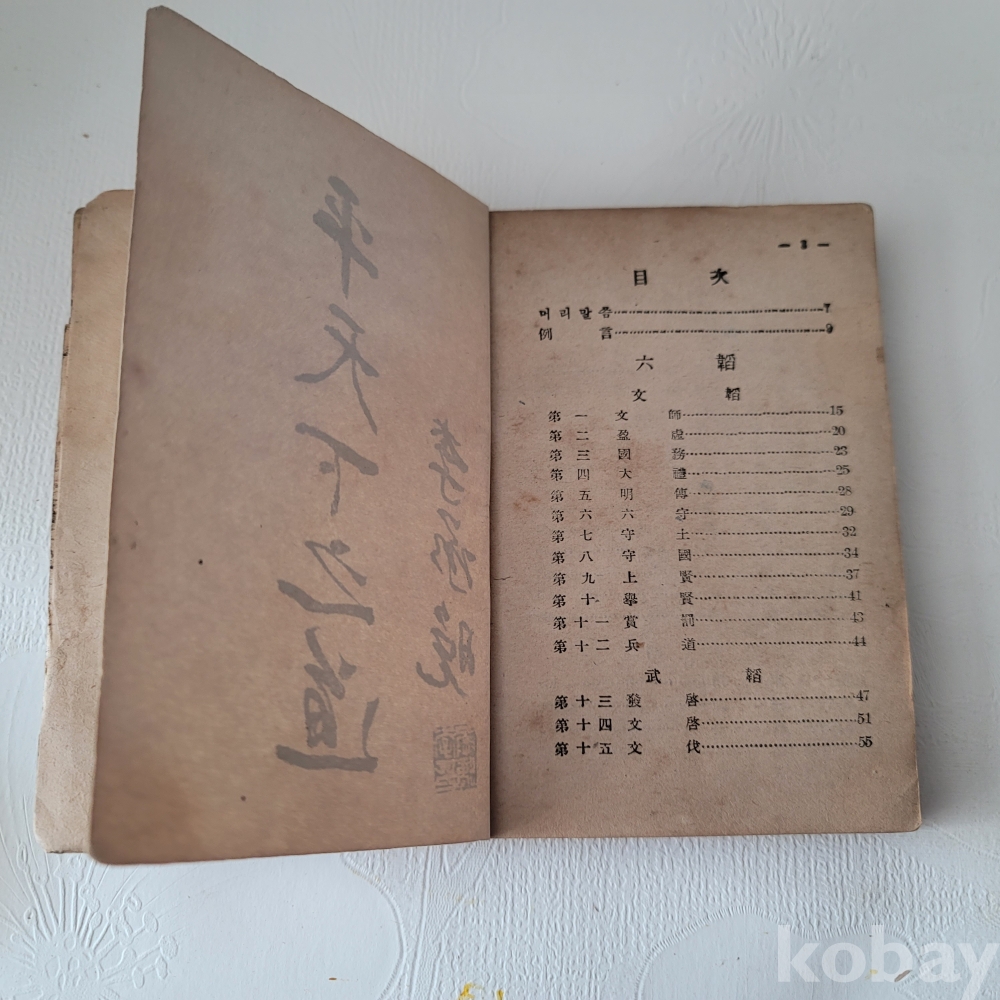 平天下之道
李承晩
— 3 —
目 次
머리말씀……7
例 言……9
六 韜
文 韜
第一 文師……15
第二 盈虛……20
第三 國務……23
第四 大禮……25
第五 明傳……28
第六 六守……29
第七 守土……32
第八 守國……34
第九 上賢……37
第十 擧賢……41
第十一 賞罰……43
第十二 兵道……44
武 韜
第十三 發啓……47
第十四 文啓……51
第十五 文伐……55
kobay